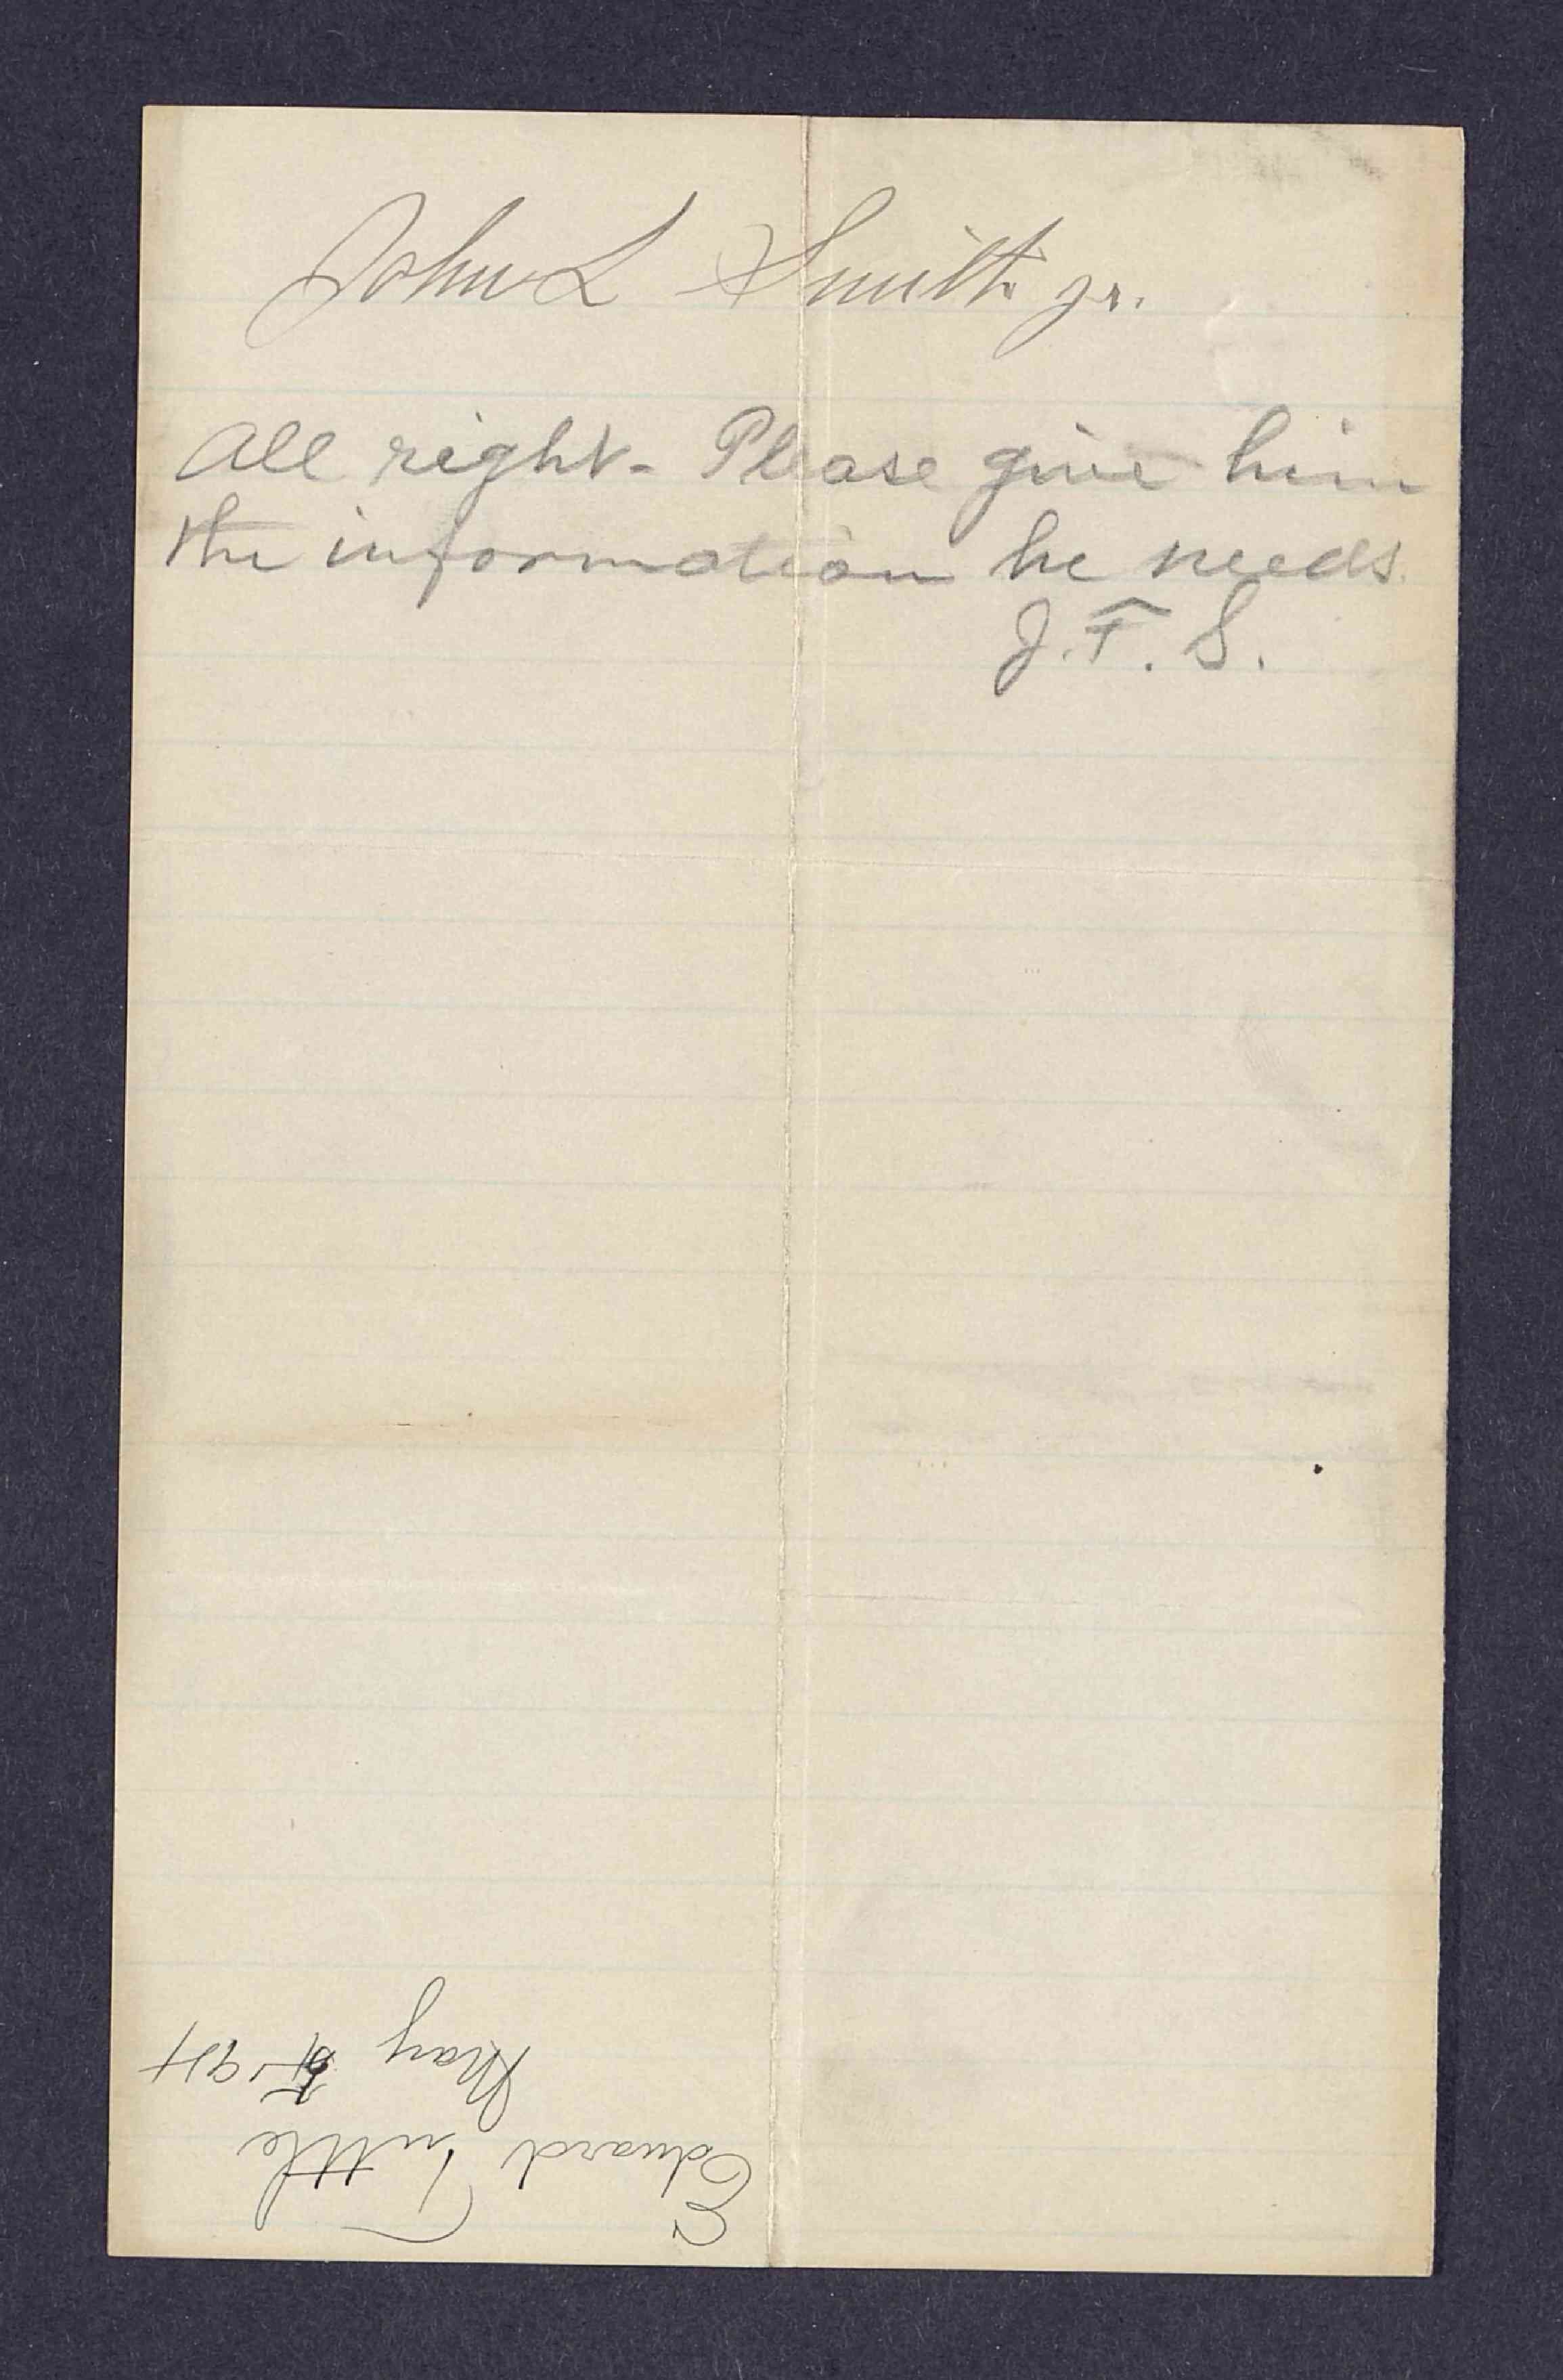 John L Smith jr.
All right - Please give him
the information he needs.
J. F. S.
Edward Tuttle
May